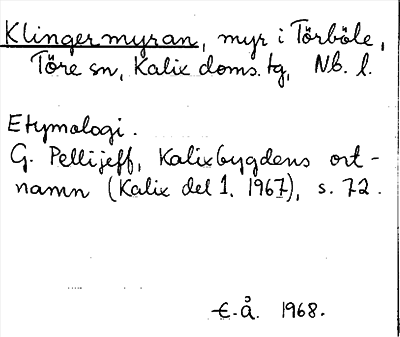 Klingermyran, myr i Törböle,
Töre sn, Kalix doms. tg, Nb. l.
Etymologi.
G. Pellijeff, Kalixbygdens ort-
namn (Kalix del 1. 1967), s. 72.
E.Å. 1968.